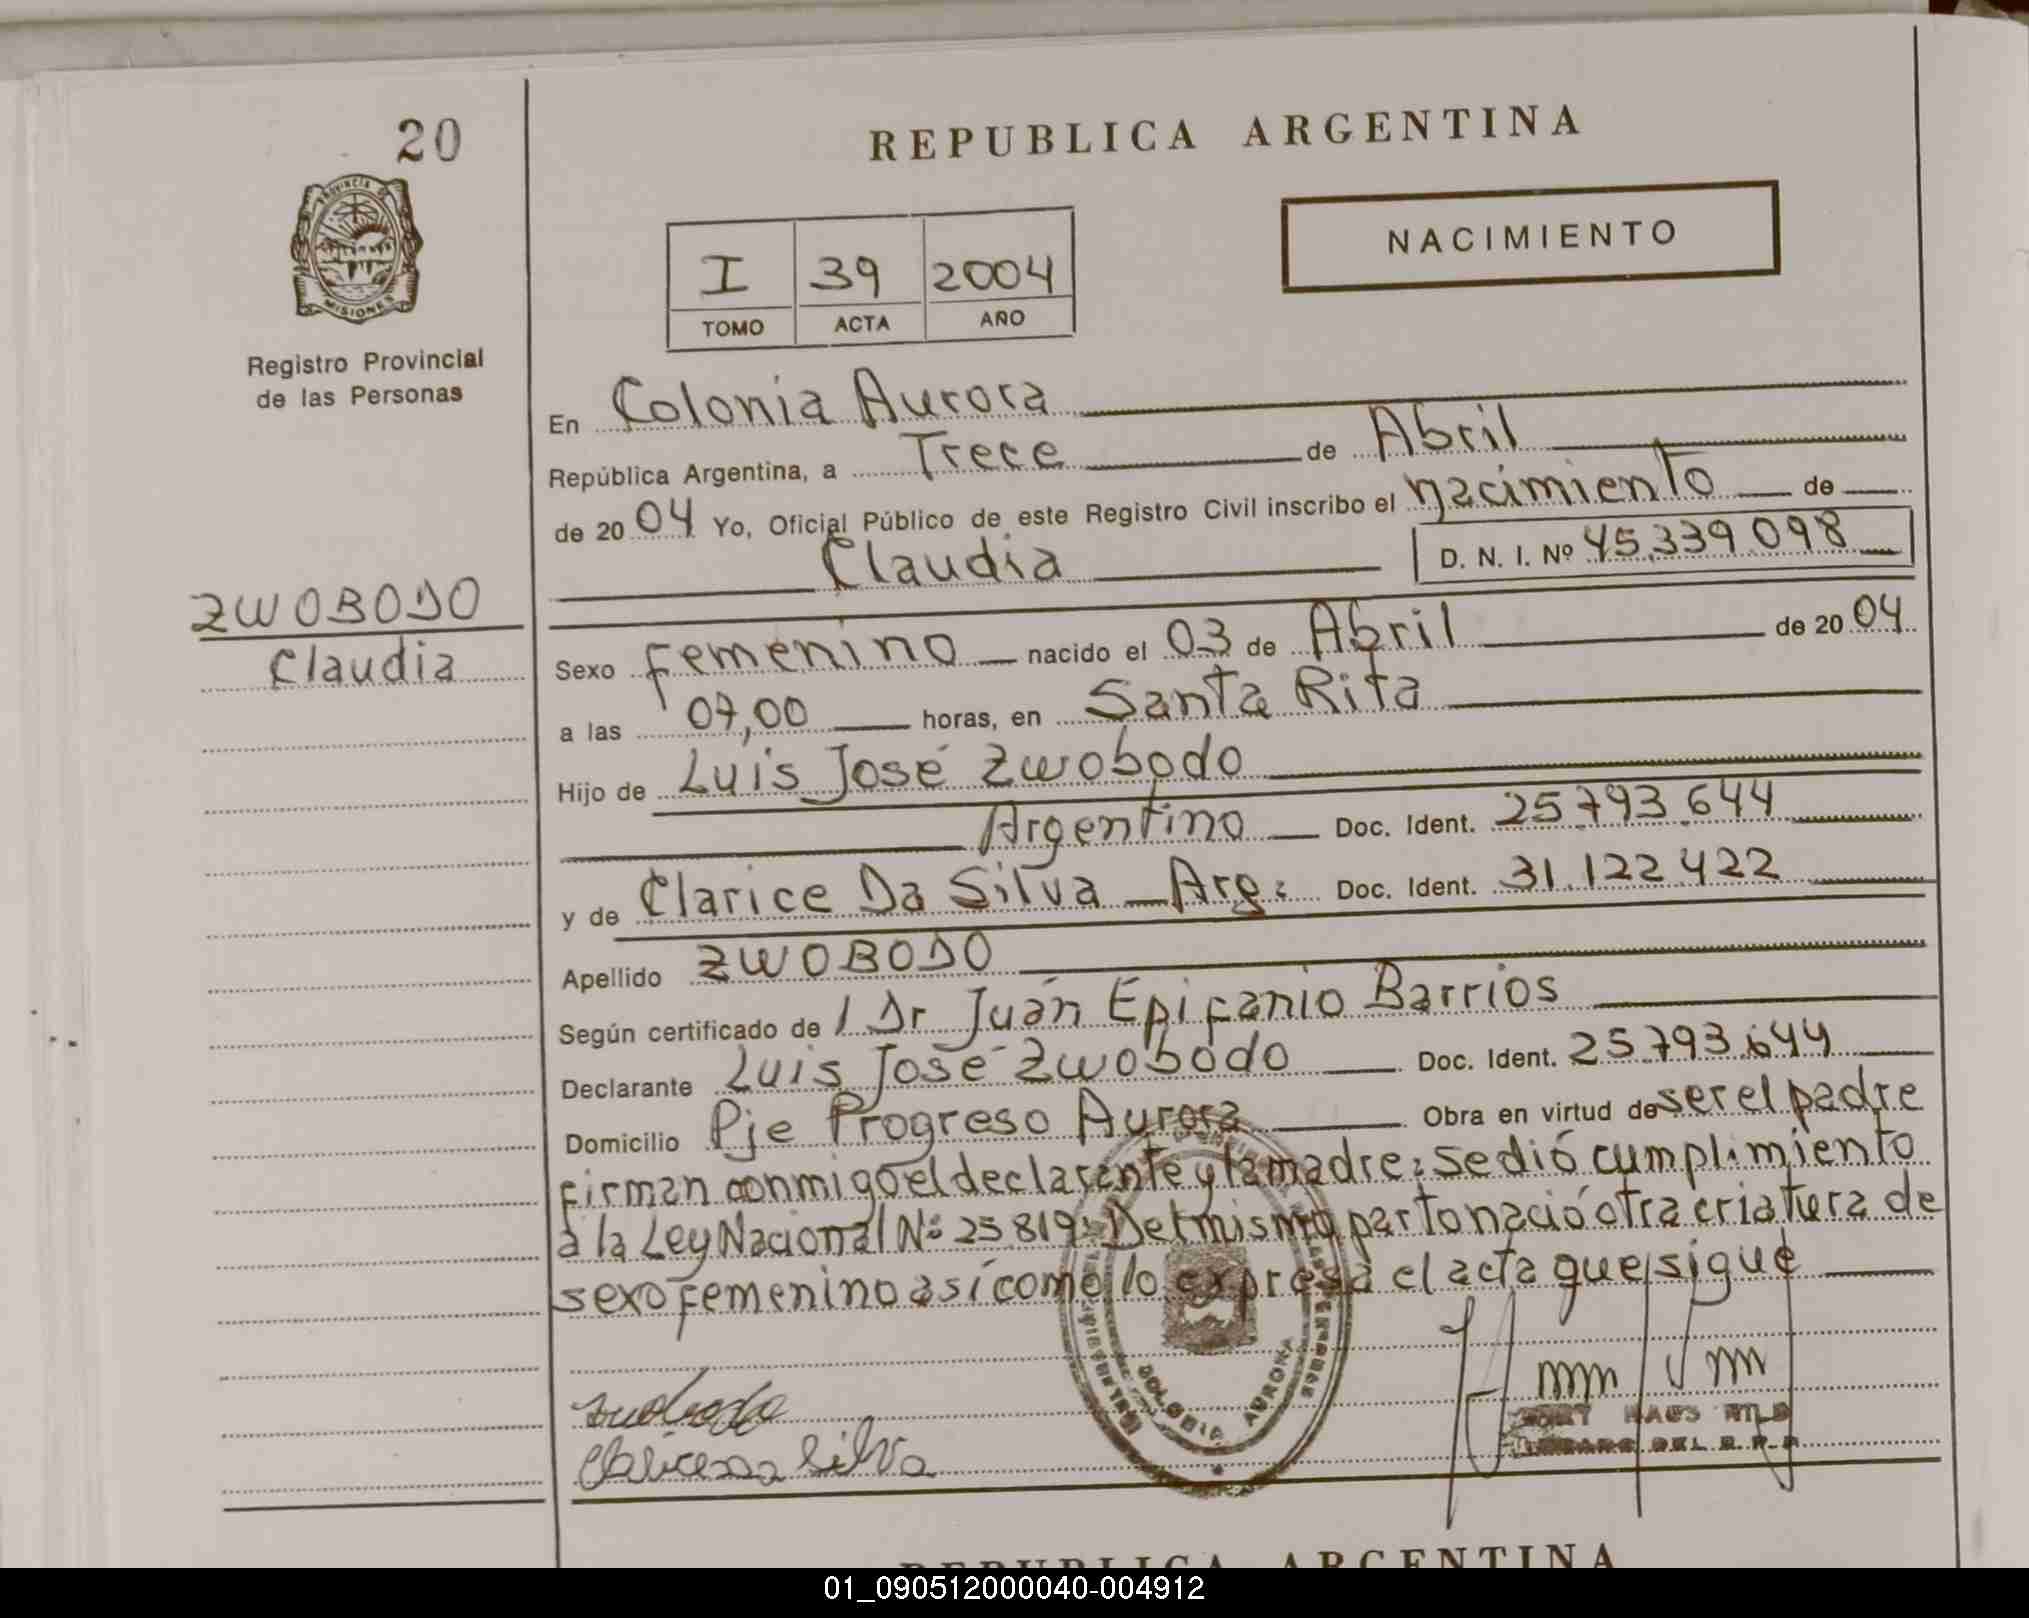 20
REPUBLICA ARGENTINA
PROVINCIA DE
MISIONES
NACIMIENTO
I 39 2004
TOMO ACTA AÑO
Registro Provincial
de las Personas
En Colonia Aurora
República Argentina, a Trece de Abril
de 2004 Yo, Oficial Público de este Registro Civil inscribo el nacimiento de
Claudia D. N. I. Nº 45.339.098
ZWOBODO
Claudia
Sexo femenino nacido el 03 de Abril de 2004
a las 07,00 horas, en Santa Rita
Hijo de Luis José Zwobodo
Argentino Doc. Ident. 25.793.644
y de Clarice Da Silva Arg: Doc. Ident. 31.122.422
Apellido ZWOBODO
Según certificado de / Dr Juán Epifanio Barrios
Declarante Luis José Zwobodo Doc. Ident. 25.793.644
Domicilio Pje Progreso Aurora Obra en virtud de ser el padre
firman conmigo el declarante y la madre; se dió cumplimiento
a la Ley Nacional Nº 25819: Del mismo parto nació otra criatura de
sexo femenino así como lo expresa el acta que sigue
COLONIA AURORA
Zwobodo
Clarice Da Silva
DEL R.P.P
REPUBLICA ARGENTINA
01_090512000040-004912